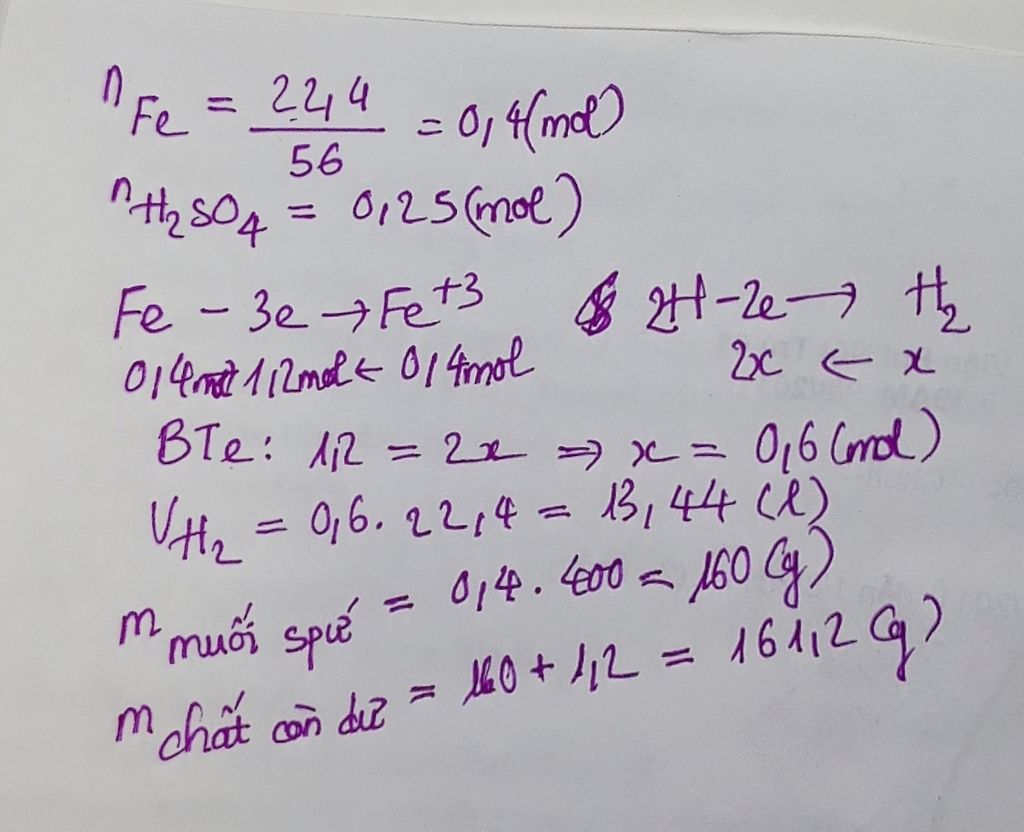 nFe = 22,4/56 = 0,4(mol)
nH₂SO₄ = 0,25(mol)
Fe - 3e → Fe⁺³ 2H - 2e → H₂
0,4mol 1,2mol ← 0,4mol 2x ← x
BTe: 1,2 = 2x ⇒ x = 0,6(mol)
VH₂ = 0,6. 22,4 = 13,44 (l)
m muối spứ = 0,4. 400 = 160 (g)
m chất còn dư = 160 + 1,2 = 161,2 (g)